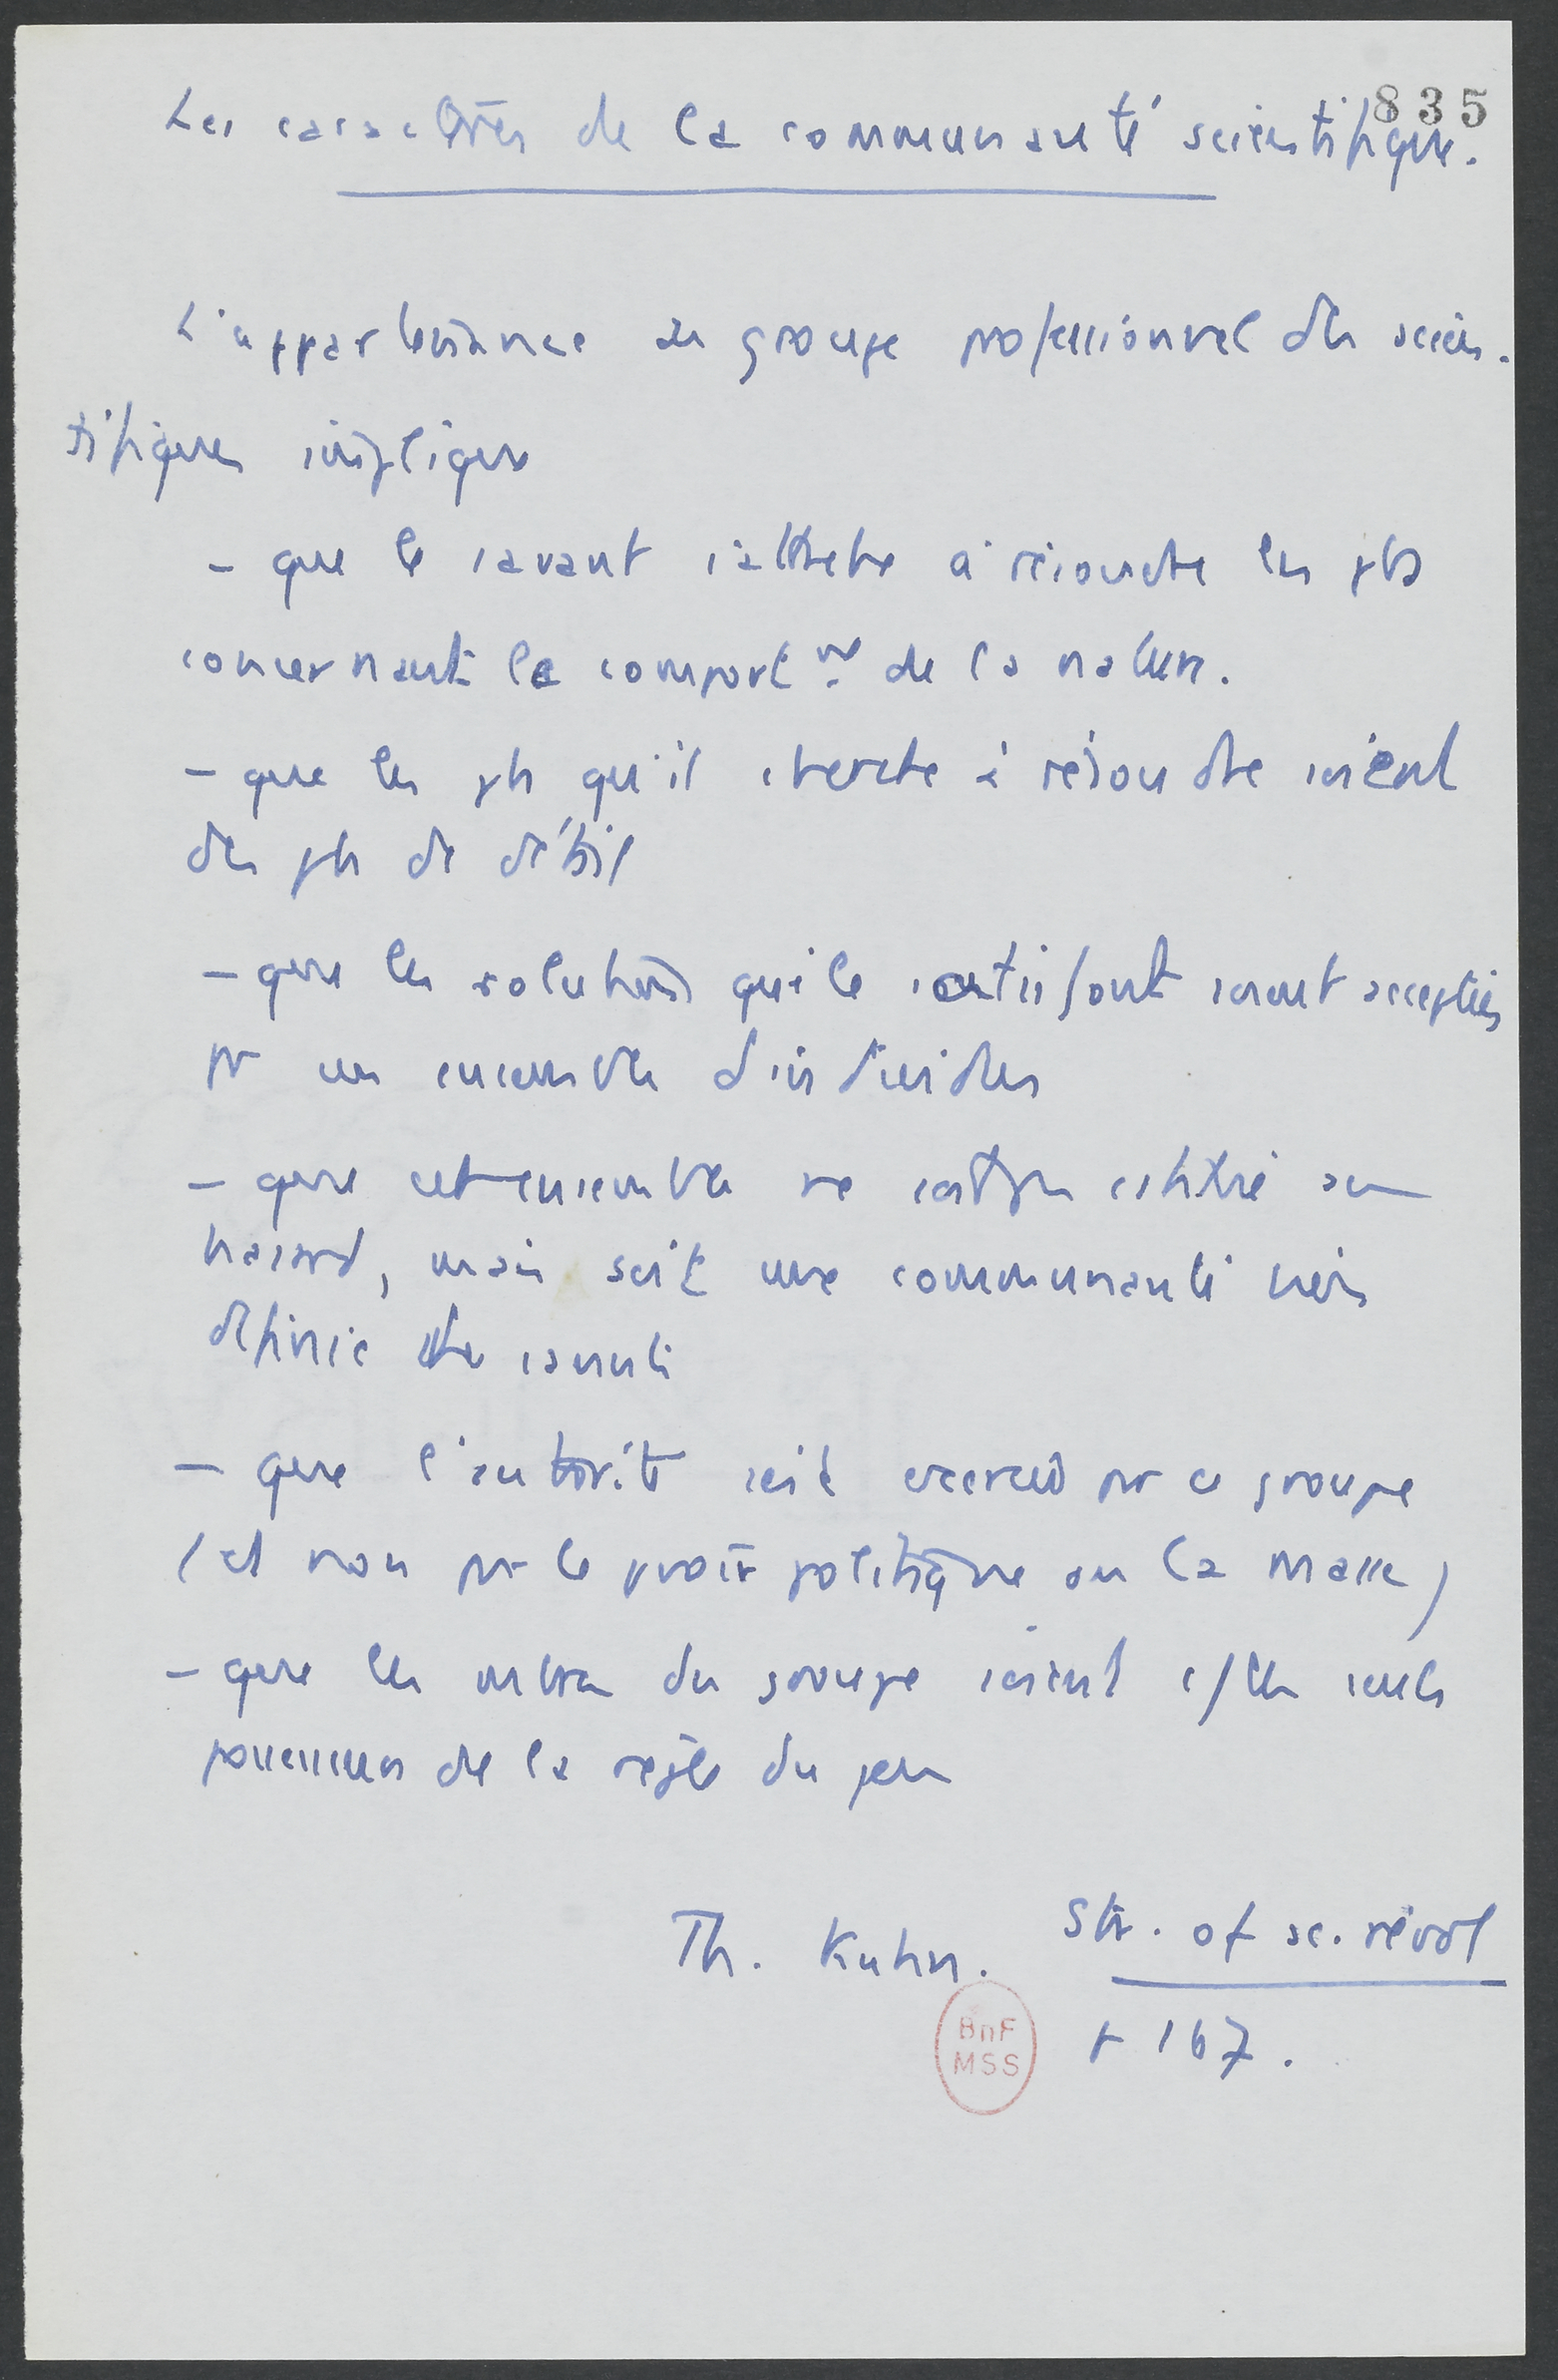 835
Les caractères de la communauté scientifique.
L'appartenance au groupe professionnel des scien-
tifiques implique
- que le savant s'attache à résoudre les pbs
concernant le comportnt de la nature.
- que les pb qu'il cherche à résoudre soient
des pb de détail
- que les solutions qui le satisfont soient acceptées
pr un ensemble d'individus
- que cet ensemble ne soit pas au
hasard, mais soit une communauté bien
définie de savants
- que l'autorité soit exercée pr ce groupe
(et non pr le pvoir politique ou la masse)
- que les mbres du groupe soient c/ les seuls
possesseurs de la règle du jeu
Th. Kuhn. Str. of sc. révol
p 167.
BnF
MSS